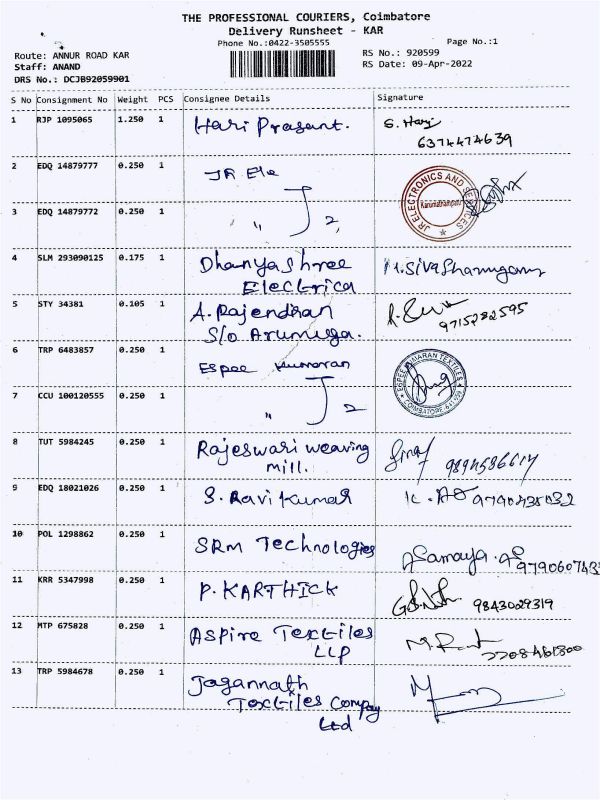 THE PROFESSIONAL COURIERS, Coimbatore
Delivery Runsheet - KAR
Phone No.:0422-3505555
Page No.:1
Route: ANNUR ROAD KAR
RS No.: 920599
Staff: ANAND
RS Date: 09-Apr-2022
DRS No.: DCJB92059901
S No Consignment No Weight PCS Consignee Details Signature
1 RJP 1095065 1.250 1 Hari Prasant. S. Hari
6374474639
2 EDQ 14879777 0.250 1 JR Ele
JR ELECTRONICS AND SERVICES
Karumathampatti
3 EDQ 14879772 0.250 1 " 2
4 SLM 293090125 0.175 1 Dhanyashree M. Sivashanmugam
Electrica
5 STY 34381 0.105 1 A. Rajendran
S/o Arumuga. 9715282595
6 TRP 6483857 0.250 1 Espee Kumaran
ESPEE KUMARAN TEXTILES
COIMBATORE
7 CCU 100120555 0.250 1 " 2
8 TUT 5984245 0.250 1 Rajeswari weaving
mill.
9 EDQ 18021026 0.250 1 S. Ravi Kumar
10 POL 1298862 0.250 1 SRM Technologies
11 KRR 5347998 0.250 1 P. KARTHICK 9843029319
12 MTP 675828 0.250 1 Aspire Textiles
LLP
13 TRP 5984678 0.250 1 Jagannath
Textiles Compay
Ltd